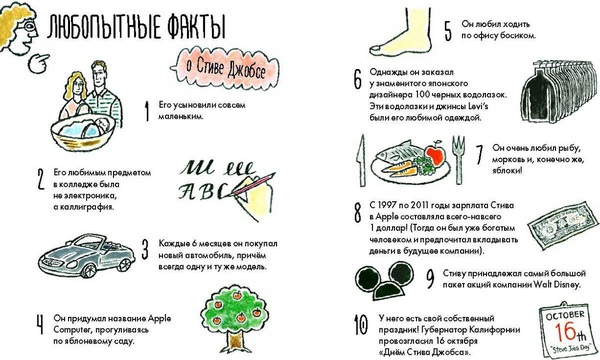 ЛЮБОПЫТНЫЕ ФАКТЫ
о Стиве Джобсе
1 Его усыновили совсем
маленьким.
2 Его любимым предметом
в колледже была
не электроника,
а каллиграфия.
ABC
3 Каждые 6 месяцев он покупал
новый автомобиль, причём
всегда одну и ту же модель.
4 Он придумал название Apple
Computer, прогуливаясь
по яблоневому саду.
5 Он любил ходить
по офису босиком.
6 Однажды он заказал
у знаменитого японского
дизайнера 100 черных водолазок.
Эти водолазки и джинсы Levi's
были его любимой одеждой.
7 Он очень любил рыбу,
морковь и, конечно же,
яблоки!
8 С 1997 по 2011 годы зарплата Стива
в Apple составляла всего-навсего
1 доллар! (Тогда он был уже богатым
человеком и предпочитал вкладывать
деньги в будущее компании).
9 Стиву принадлежал самый большой
пакет акций компании Walt Disney.
10 У него есть свой собственный
праздник! Губернатор Калифорнии
провозгласил 16 октября
«Днём Стива Джобса».
OCTOBER
16th
"Steve Jobs Day"